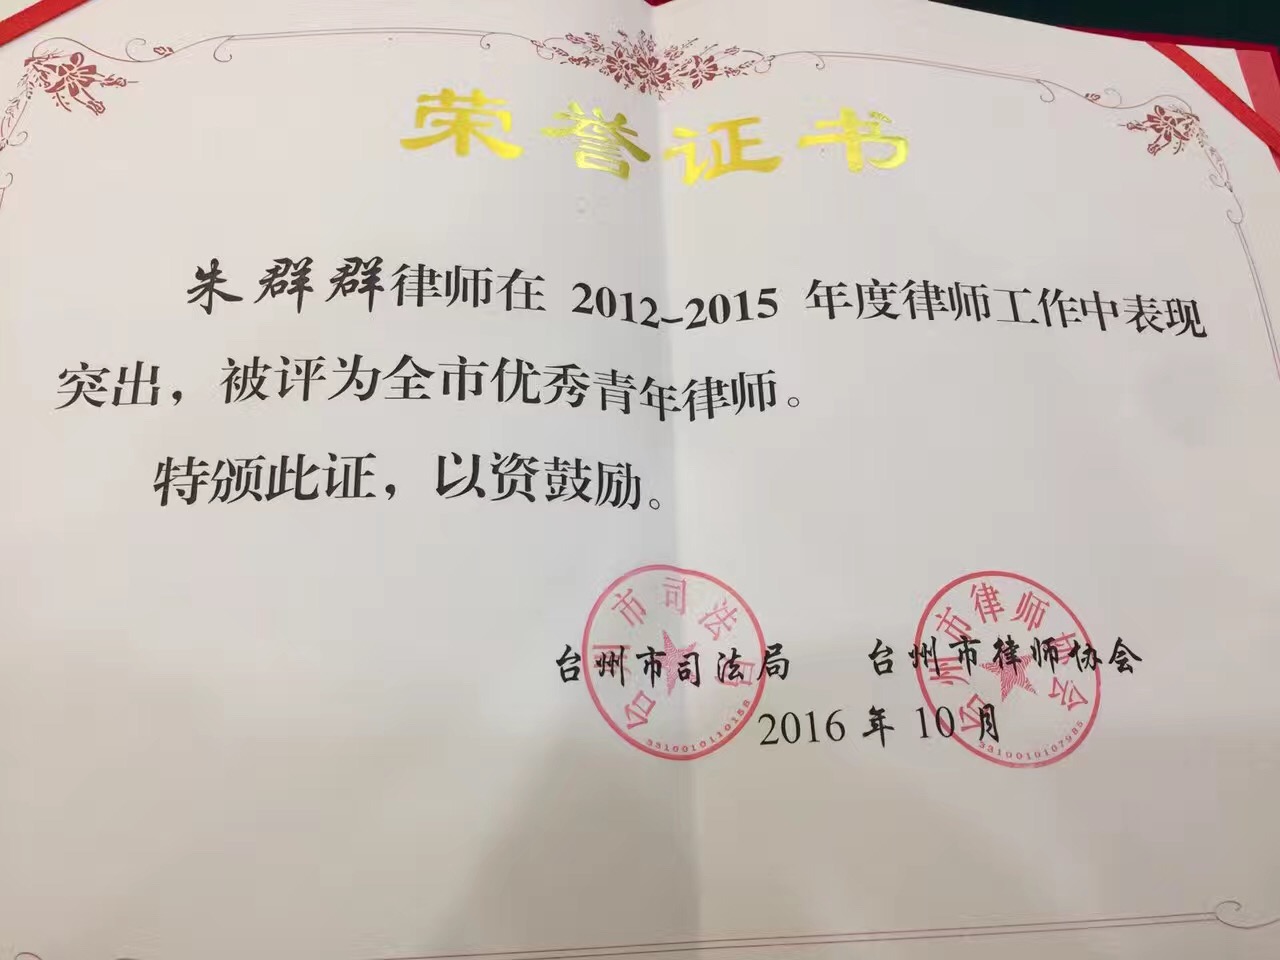 荣誉证书
朱群群律师在 2012-2015 年度律师工作中表现
突出，被评为全市优秀青年律师。
特颁此证，以资鼓励。
台州市司法局
台州市律师协会
台州市司法局 台州市律师协会
2016 年 10 月
3310010110158
3310010107985